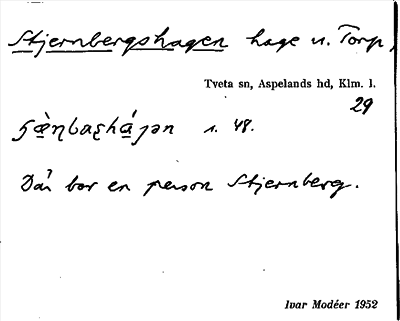 Stjernbergshagen hage u. Torp,
Tveta sn, Aspelands hd, Klm. l.
29
s. 48.
Där bor en person Stjernberg.
Ivar Modéer 1952